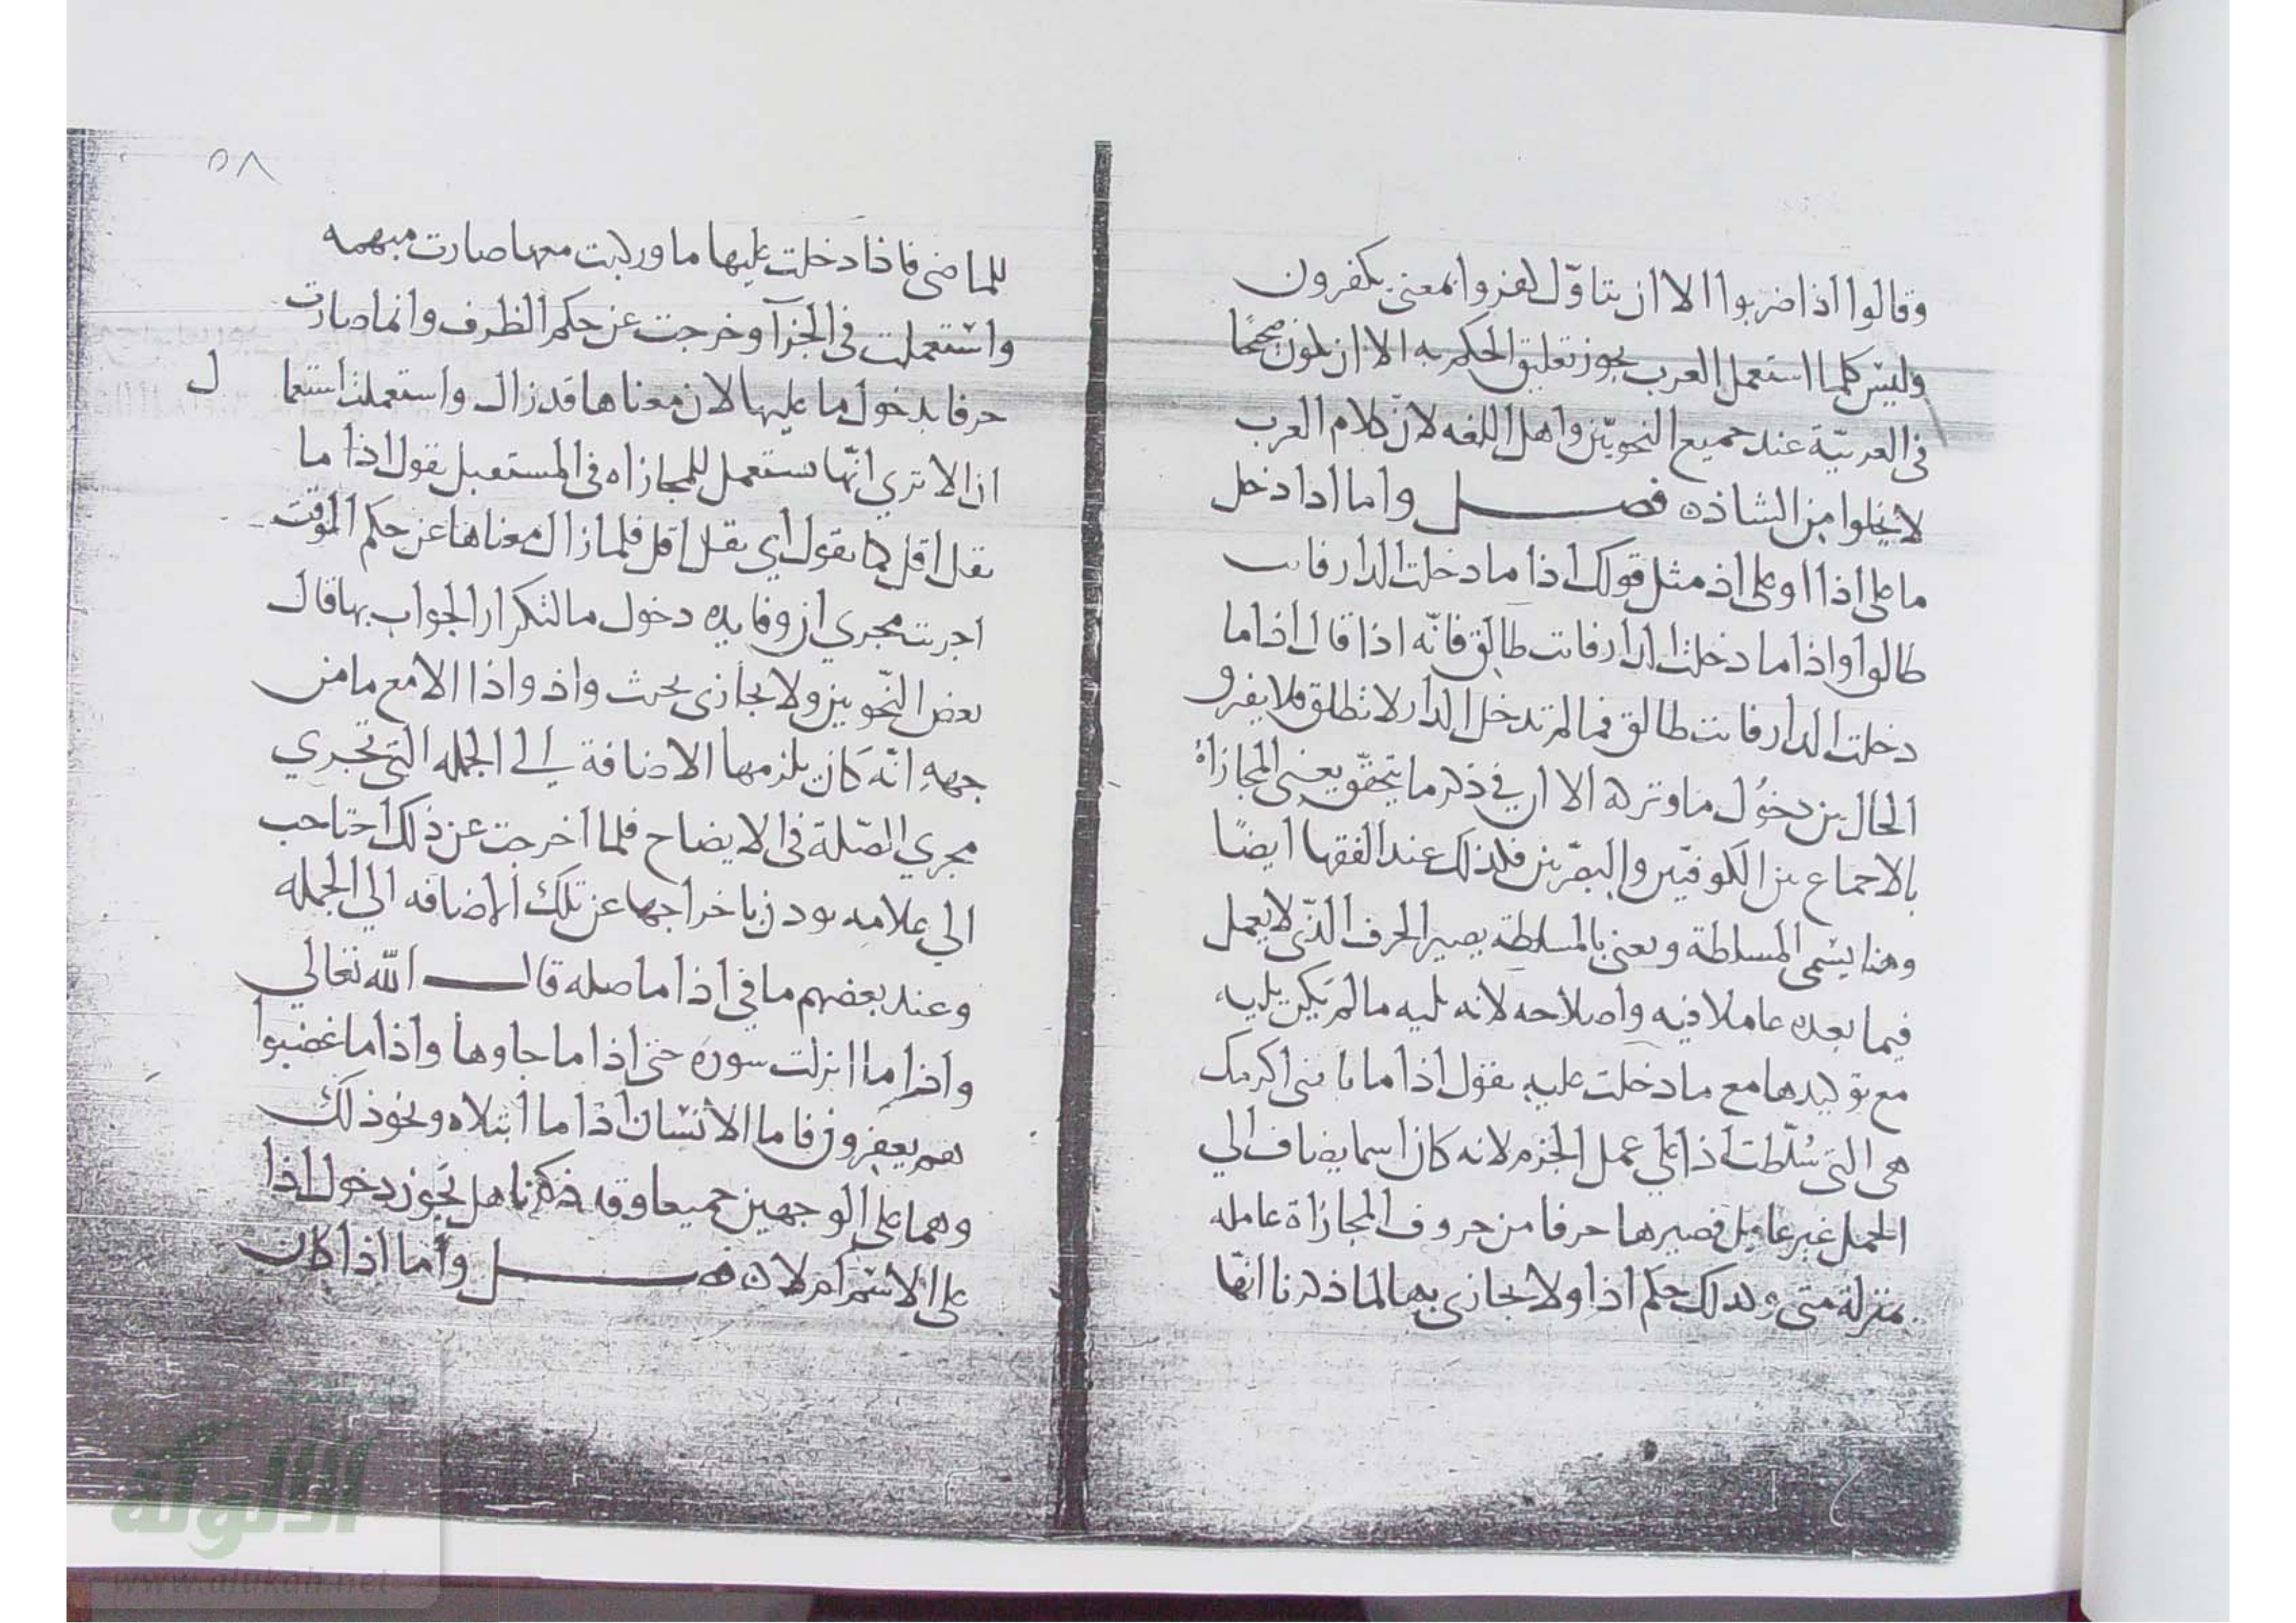 وقالوا اذا ضربوا الا ان يتاوّل كفروا بمعنى يكفرون
وليس كلما استعمل العرب يجوز تعليق الحكم به الا ان يكون صحيحًا
فى العربيّة عند جميع النحويّين واهل اللغه لان كلام العرب
لا يخلوا من الشاذه فصل واما اذا دخل
ما على اذا او على اذ مثل قولك اذا ما دخلت الدار فانت
طالق او اذا ما دخلت الدار فانت طالق فانّه اذا قال اذا ما
دخلت الدار فانت طالق فما لم تدخل الدار لا تطلق فلا يفرو
الحال بين دخول ما وتركه الا ان في ذكر ما يتحقّق يعنى المجازاة
بالاجماع بين الكوفيّين والبصريّين فكذلك عند الفقها ايضًا
وهذا يسمى المسلطة ويعنى بالمسلطة يصير الحرف الذى لا يعمل
فيما بعده عاملا فيه واصلاحه لانه يليه ما لم يكن يليه
مع توكيدها مع ما دخلت عليه يقول اذا ما تاتنى اكرمك
هى التى سُلّطت اذا على عمل الجزم لانه كان اسما يضاف الي
الجمل غير عامل فصيرها حرفا من حروف المجازاة عامله
بمنزلة متى وكذلك حكم اذ اولا يجازى بها لما ذكرنا انّها
٥٨
للماضى فاذا دخلت عليها ما وركبت معها صارت مبهمه
واستعملت فى الجزآ وخرجت عن حكم الظرف وانما صارت
حرفا بدخول ما عليها لان معناها قد زال واستعملت استعمال
ان الا تري انّها تستعمل للمجازاه فى المستقبل يقول اذا ما
تقل اقل كما يقول اي تقل اقل فلما زال معناها عن حكم الموقت
اجريت مجري ان وفايده دخول ما لتكرار الجواب بها قال
بعض النّحويين ولا يجازى بحيث واذ واذا الا مع ما من
جهه انّه كان يلزمها الاضافة الى الجمله التى تجري
مجري الصّلة فى الايضاح فلما اخرجت عن ذلك احتاجت
الي علامه توذن باخراجها عن تلك الاضافه الي الجمله
وعند بعضهم ما في اذا ما صله قال الله تعالي
واذا ما انزلت سورة حتى اذا ما جاوها واذا ما غضبوا
هم يغفرون فاما الانسان اذا ما ابتلاه ونحو ذلك
وهما على الوجهين جميعا وقد ذكرنا هل يجوز دخول اذا
على الاسم ام لا فصل وأما اذا كان
الألوكة
www.alukah.net